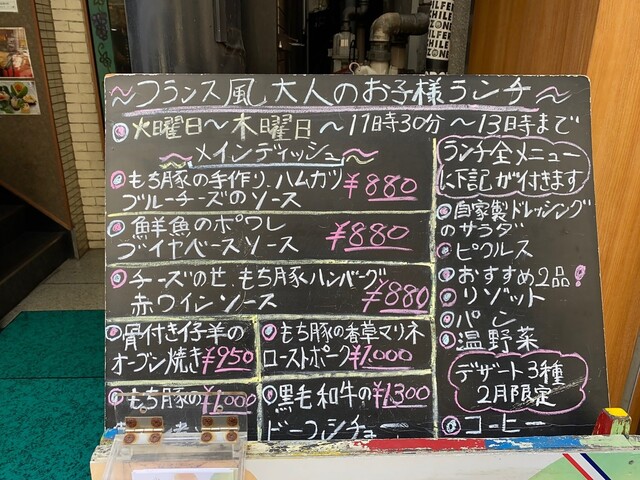 フランス風 大人のお子様ランチ
火曜日～木曜日 ～11時30分～13時まで
メインディッシュ
もち豚の手作り、ハムカツ
ブルーチーズのソース ¥880
鮮魚のポワレ
ブイヤベースソース ¥880
チーズのせ、もち豚ハンバーグ
赤ワインソース ¥880
骨付き仔羊の
オーブン焼き ¥950
もち豚の香草マリネ
ローストポーク ¥1,000
もち豚の ¥1,000
黒毛和牛の ¥1,300
ビーフシチュー
ランチ全メニュー
に下記が付きます
自家製ドレッシング
のサラダ
ピクルス
おすすめ2品!
リゾット
パン
温野菜
デザート3種
2月限定
コーヒー
CHILE
ZONE